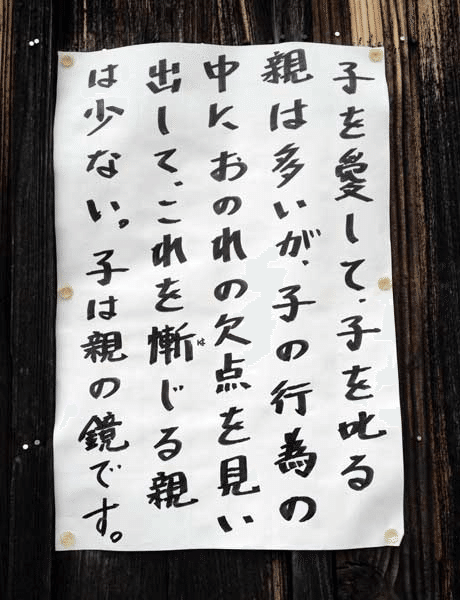 子を愛して、子を叱る
親は多いが、子の行為の
中におのれの欠点を見い
出して、これを慚じる親
は少ない。子は親の鏡です。
は